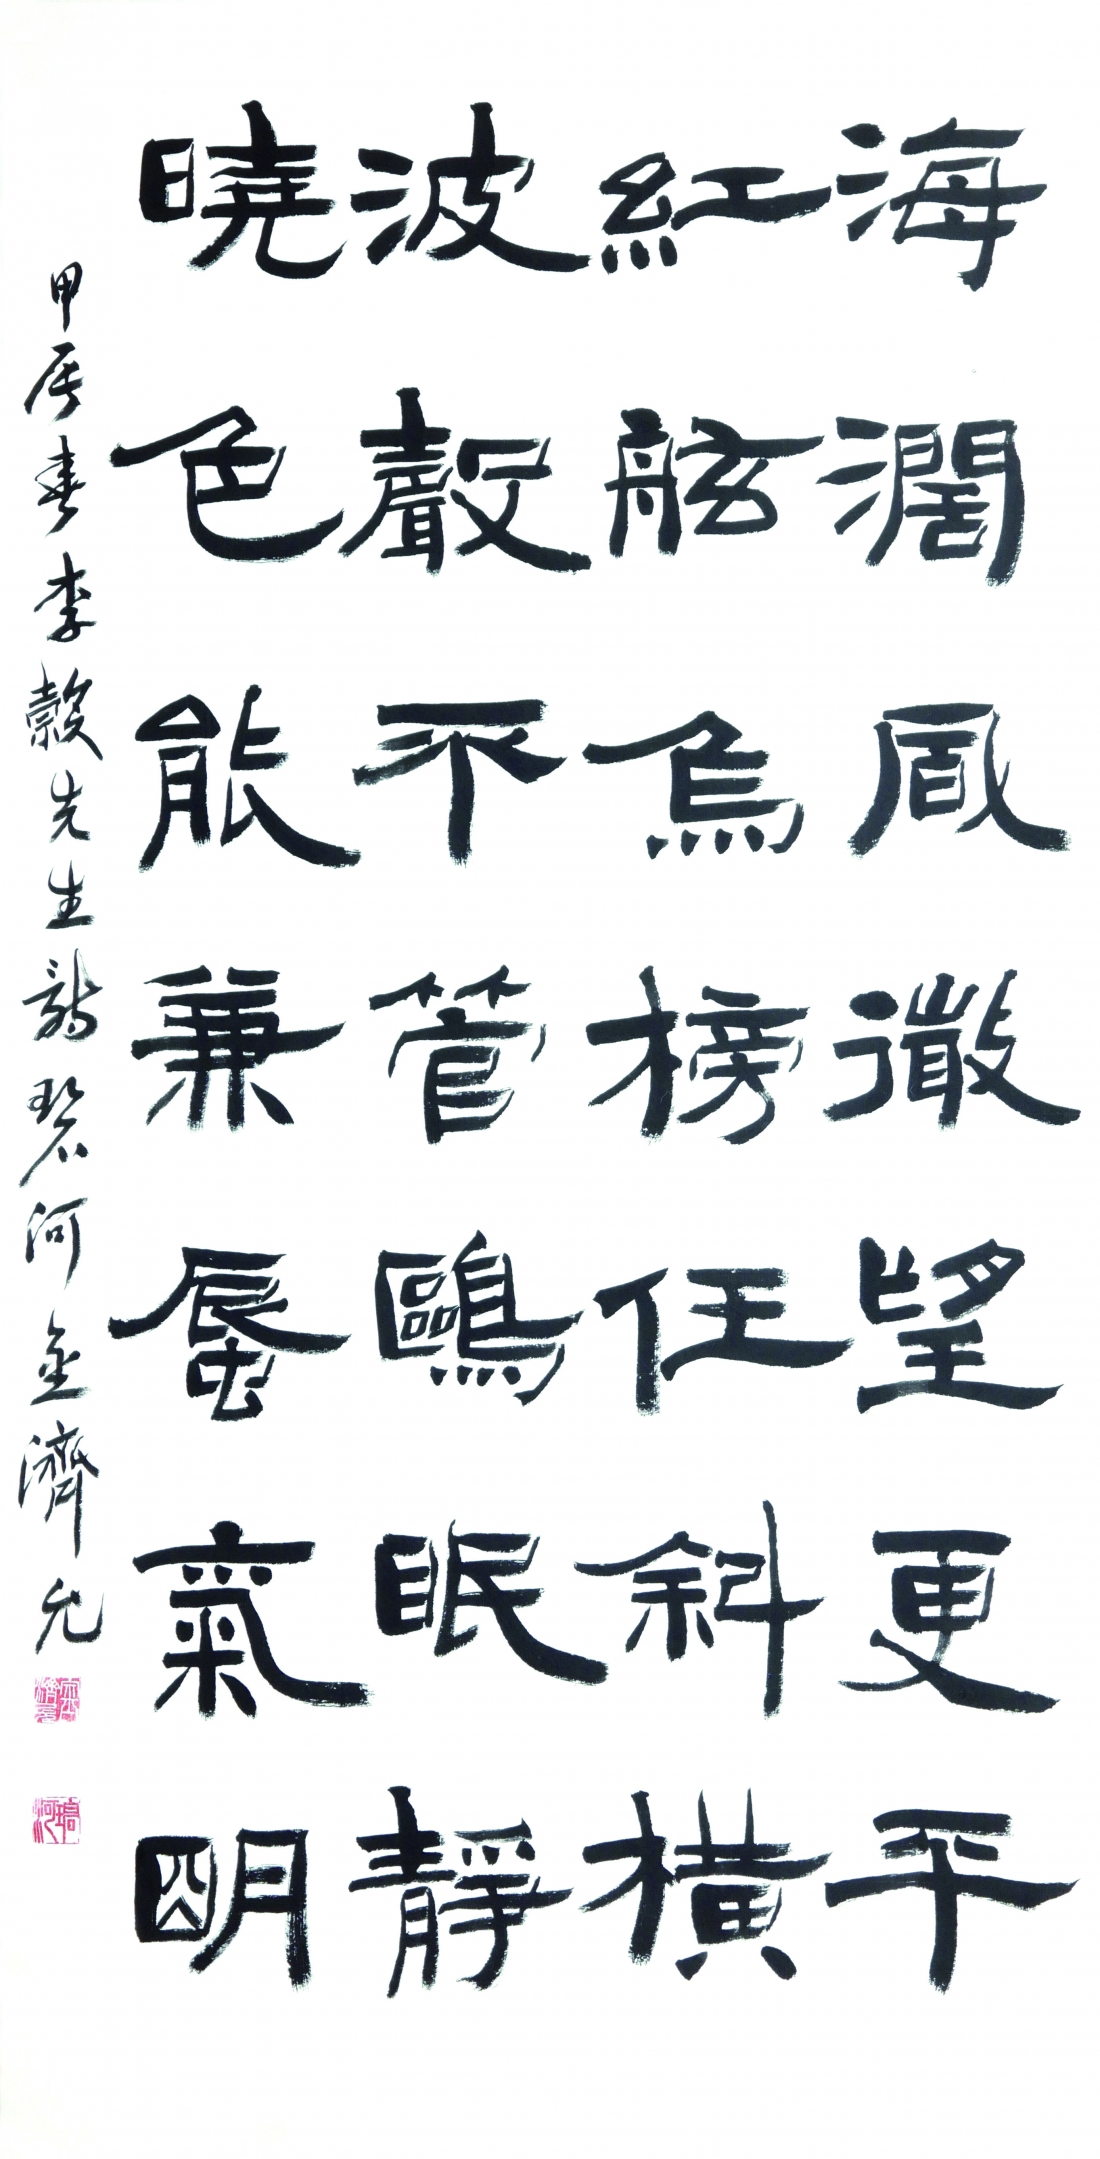 海濶凮微望更平
紅舷烏榜任斜橫
波聲不管鷗眠靜
曉色能兼蜃氣明
甲辰春李穀先生詩碧河金濟允